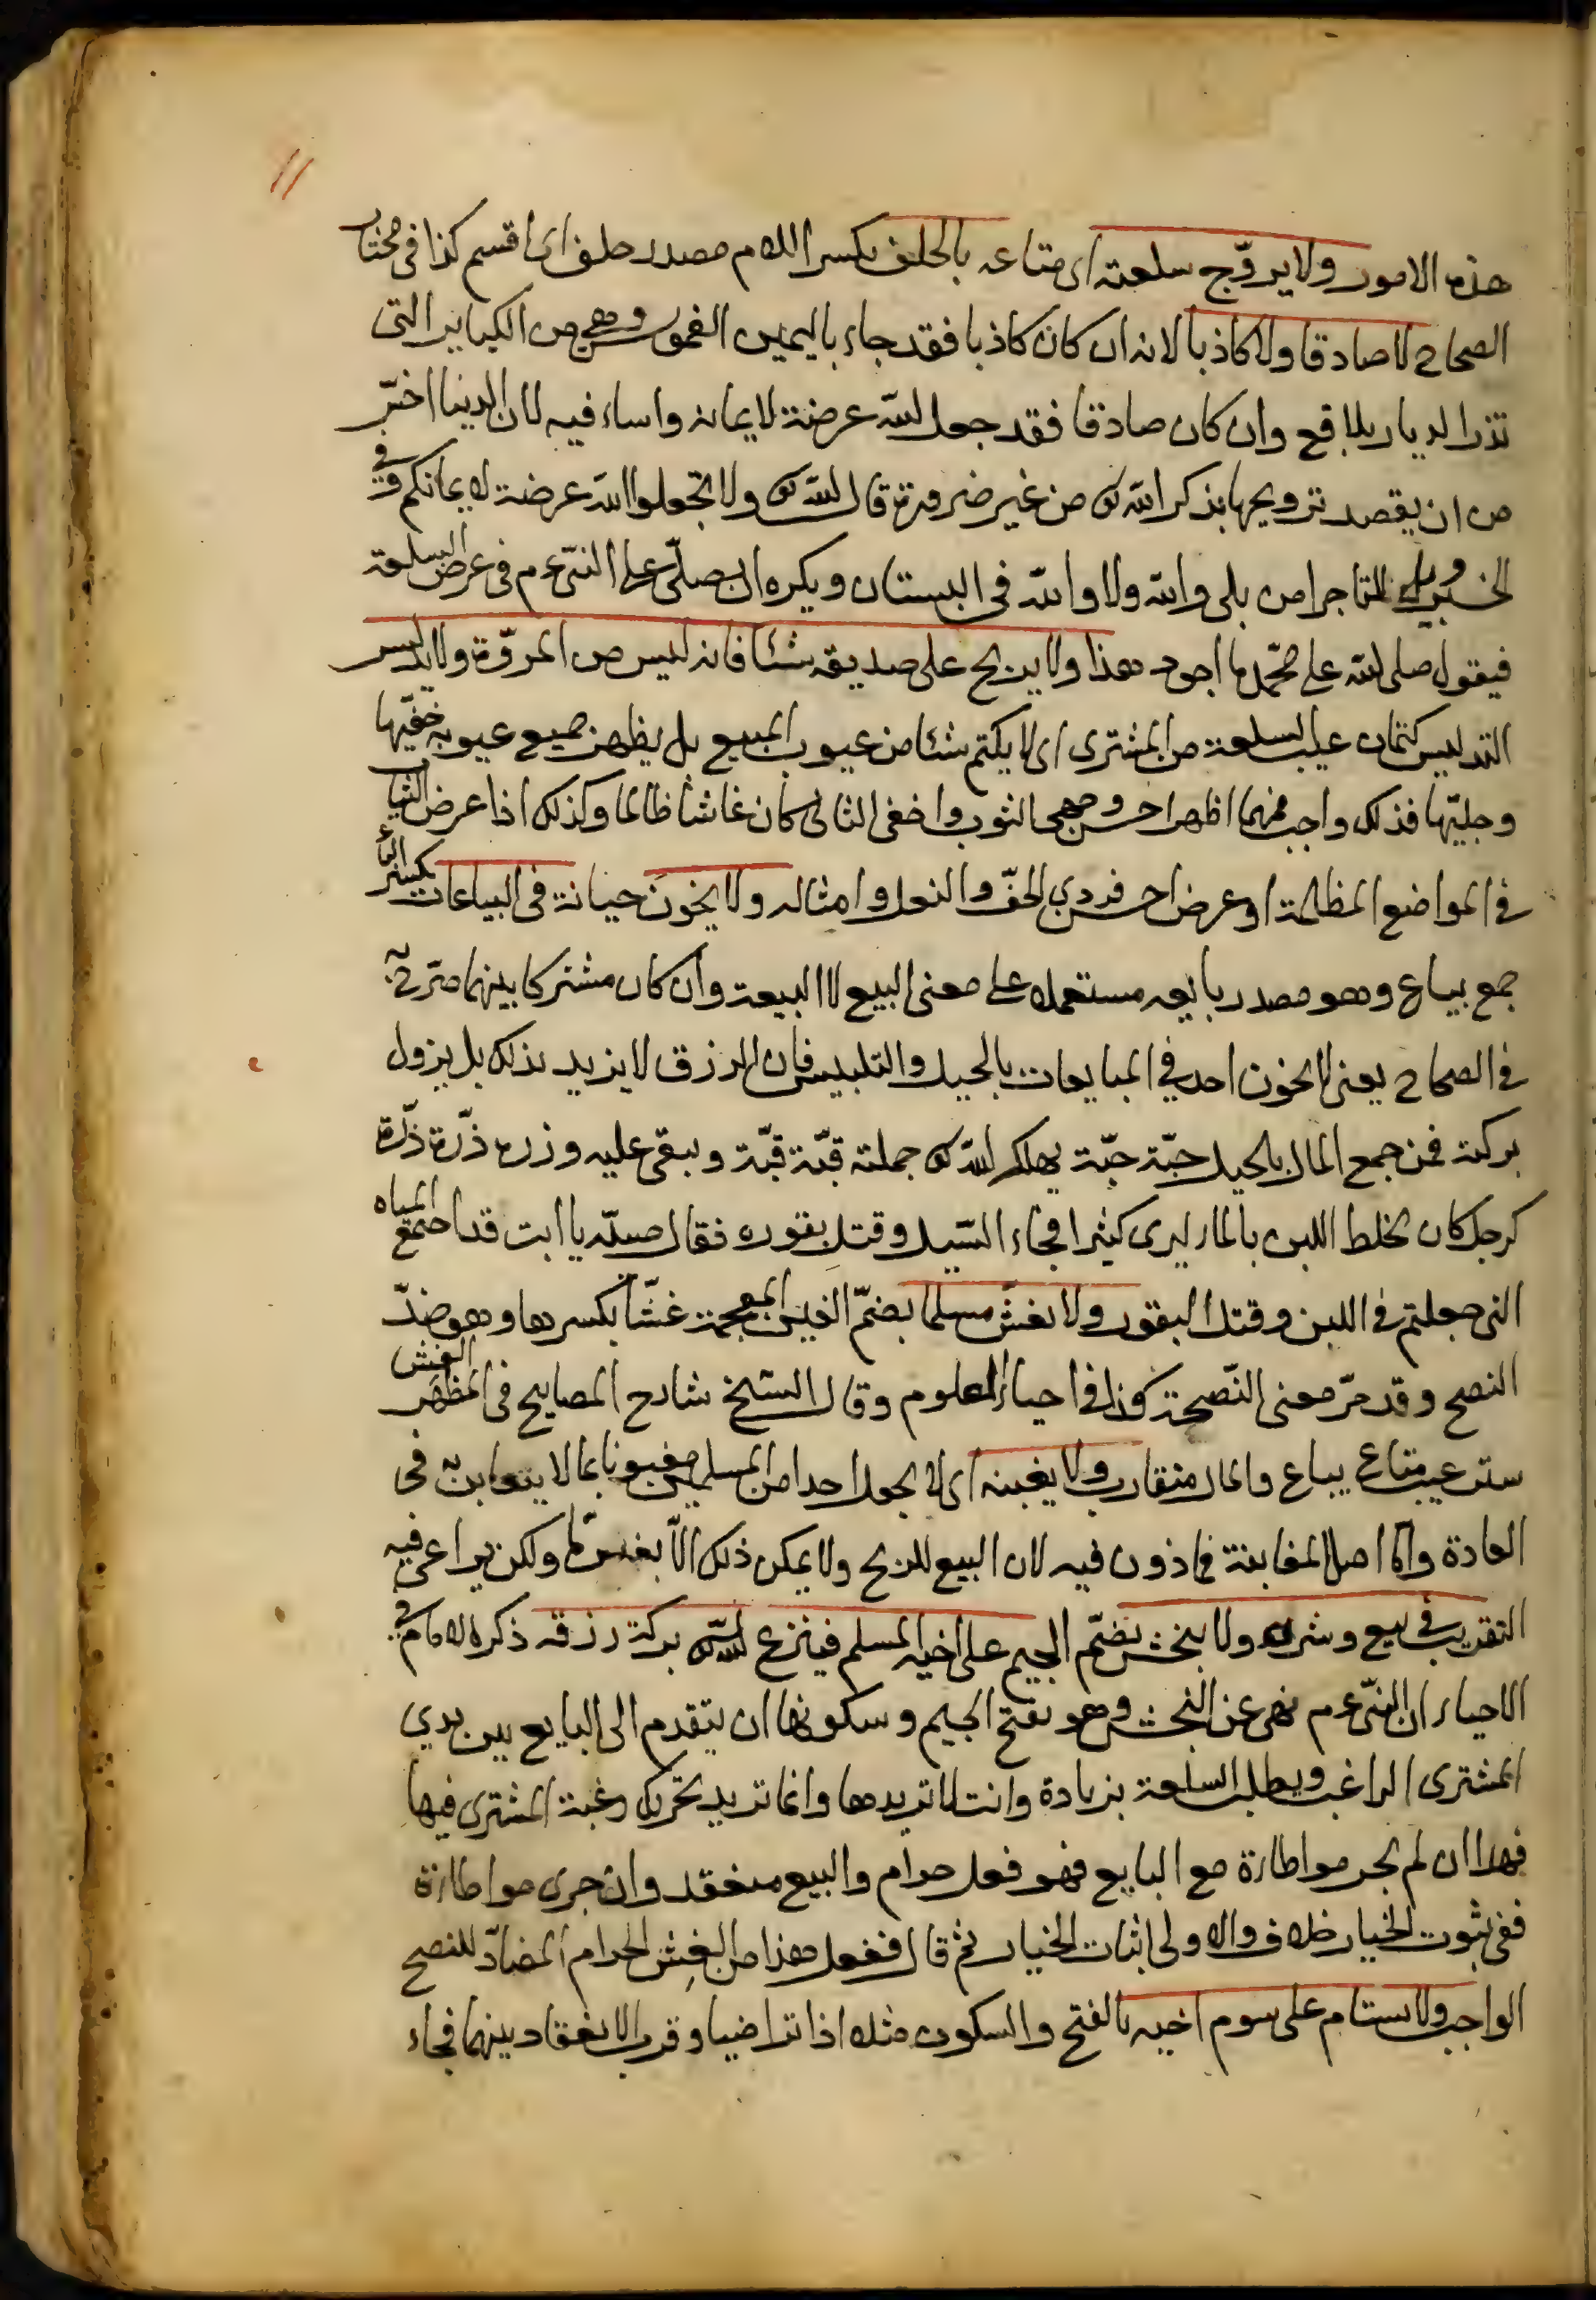 هذه الامور ولا يروّج سلعته اى متاعه بالحلف بكسر اللام مصدر حلف اى اقسم كذا فى مختار
الصحاح لا صادقا ولا كاذبا لانه ان كان كاذبا فقد جاء باليمين الغموس وهى من الكبائر التى
تذر الديار بلاقع وان كان صادقا فقد جعل الله عرضة لايمانه واساء فيه لان الدنيا اخسّ
من ان يقصد ترويجها بذكر الله تع من غير ضرورة قال الله تع ولا تجعلوا الله عرضة لايمانكم وفى
الخبر ويل للتاجر من بلى والله ولا والله فى البستان ويكره ان يصلّى على النبىّ عم فى عرض السلعة
فيقول صلى الله على محمّد ما اجود هذا ولا يربح على صديقه شئا فانه ليس من المروّة ولا يدلّس
التدليس كتمان عيب السلعة من المشترى اى لا يكتم شئا من عيوب المبيع بل يظهر جميع عيوبه خفيّها
وجليّها فذلك واجب فمهما اظهر احسن وجهى الثوب واخفى الثانى كان غاشا ظالما وكذلك اذا عرض الثياب
فى المواضع المظلمة او عرض احسن فردى الخفّ والنعل وامثاله ولا يخون خيانة فى البياعات بكسر الباء
جمع بياع وهو مصدر بايعه مستعمل على معنى البيع لا البيعة وان كان مشتركا بينهما صرّح به
فى الصحاح يعنى لا يخون احد فى المبايعات بالحيل والتلبيس فان الرزق لا يزيد بذلك بل يزول
بركته فمن جمع المال بالحيل حبّة حبّة يهلك الله تع جملته قبّة قبّة ويبقى عليه وزره ذرّة ذرّة
كرجل كان يخلط اللبن بالماء ليرى كثيرا فجاء السّيل وقتل بقوره فقال صبيّه يا ابت قد اجتمع المياه
التى جعلتم فى اللبن وقتل البقور ولا يغشّ مسلما بضمّ الغين المعجمة غشّا بكسرها وهو ضدّ
النصح وقد مرّ معنى النّصيحة كذا فى احياء العلوم وقال الشّيخ شارح المصابيح فى المظهر الغش
ستر عيب متاع يباع والمال متقارب ولا يغبنه اى لا يجعل احدا من المسلمين مغبونا بما لا يتغابن به فى
العادة وامّا اصل المغابنة فماذون فيه لان البيع للربح ولا يمكن ذلك الّا بغبن مّا ولكن يراعى فيه
التقريب فى بيع وشراء ولا ينجش بضمّ الجيم على اخيه المسلم فينزع الله تع بركة رزقه ذكر الامام فى
الاحياء ان النبىّ عم نهى عن النجش وهو بفتح الجيم وسكونها ان يتقدم الى البايع بين يدي
المشترى الراغب ويطلب السلعة بزيادة وانت لا تريدها وانما تريد تحريك رغبة المشترى فيها
فهذا ان لم يجر مواطاءة مع البايع فهو فعل حرام والبيع منعقد وان جرى مواطاءة
ففى ثبوت الخيار خلاف والاولى اثبات الخيار ثم قال ففعل هذا من الغش الحرام المضادّ للنصح
الواجب ولا يستام على سوم اخيه بالفتح والسكون مثله اذا تراضيا وقرب الانعقاد بينهما فجاء